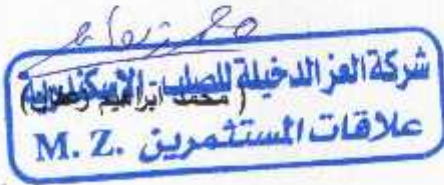 شركة العز الدخيلة للصلب - الإسكندرية
(محمد ابراهيم رمضان)
علاقات المستثمرين M. Z.